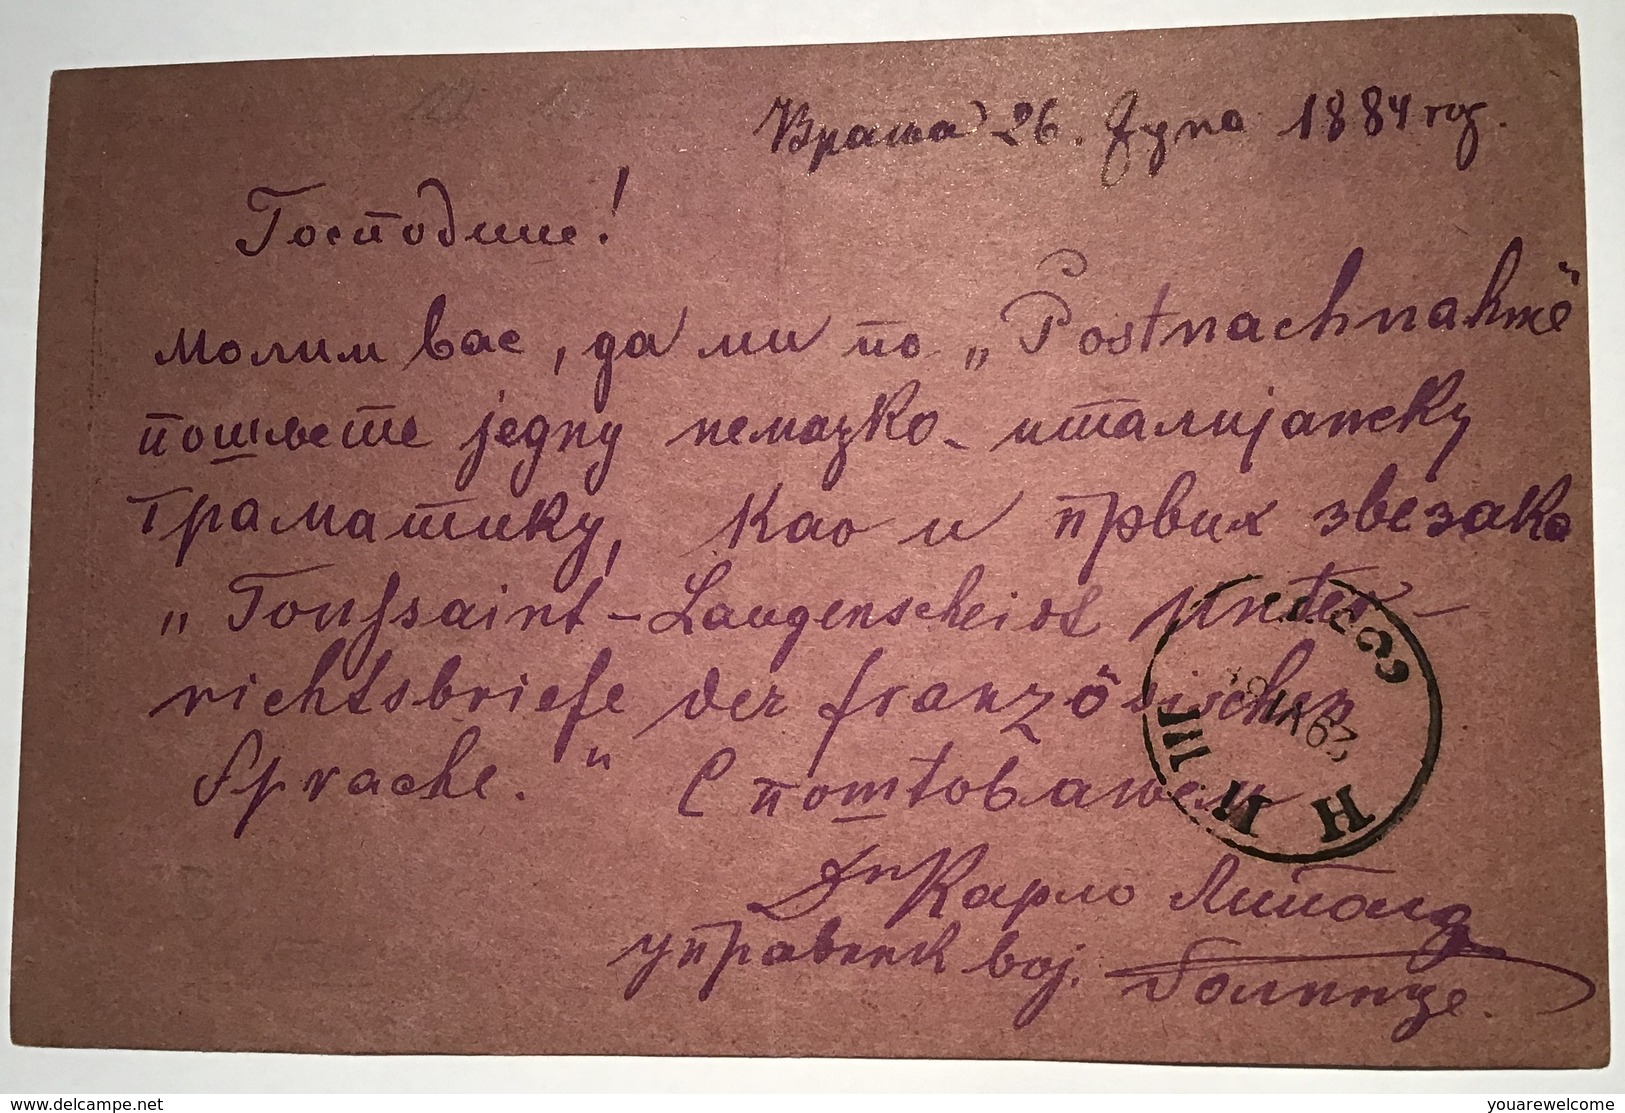 Врања 26. Јуна 1884 год.
Господине!
молим вас, да ми по „Postnachnahme“
пошљете једну немачко-италијанску
граматику, као и првих звезака
„Toussaint-Langenscheidt Unter-
richtsbriefe der französischen
Sprache.“ С поштовањем
Др Карло
управник вој. болнице.
НИШ
29 VI 84
delcampe.net
youarewelcome